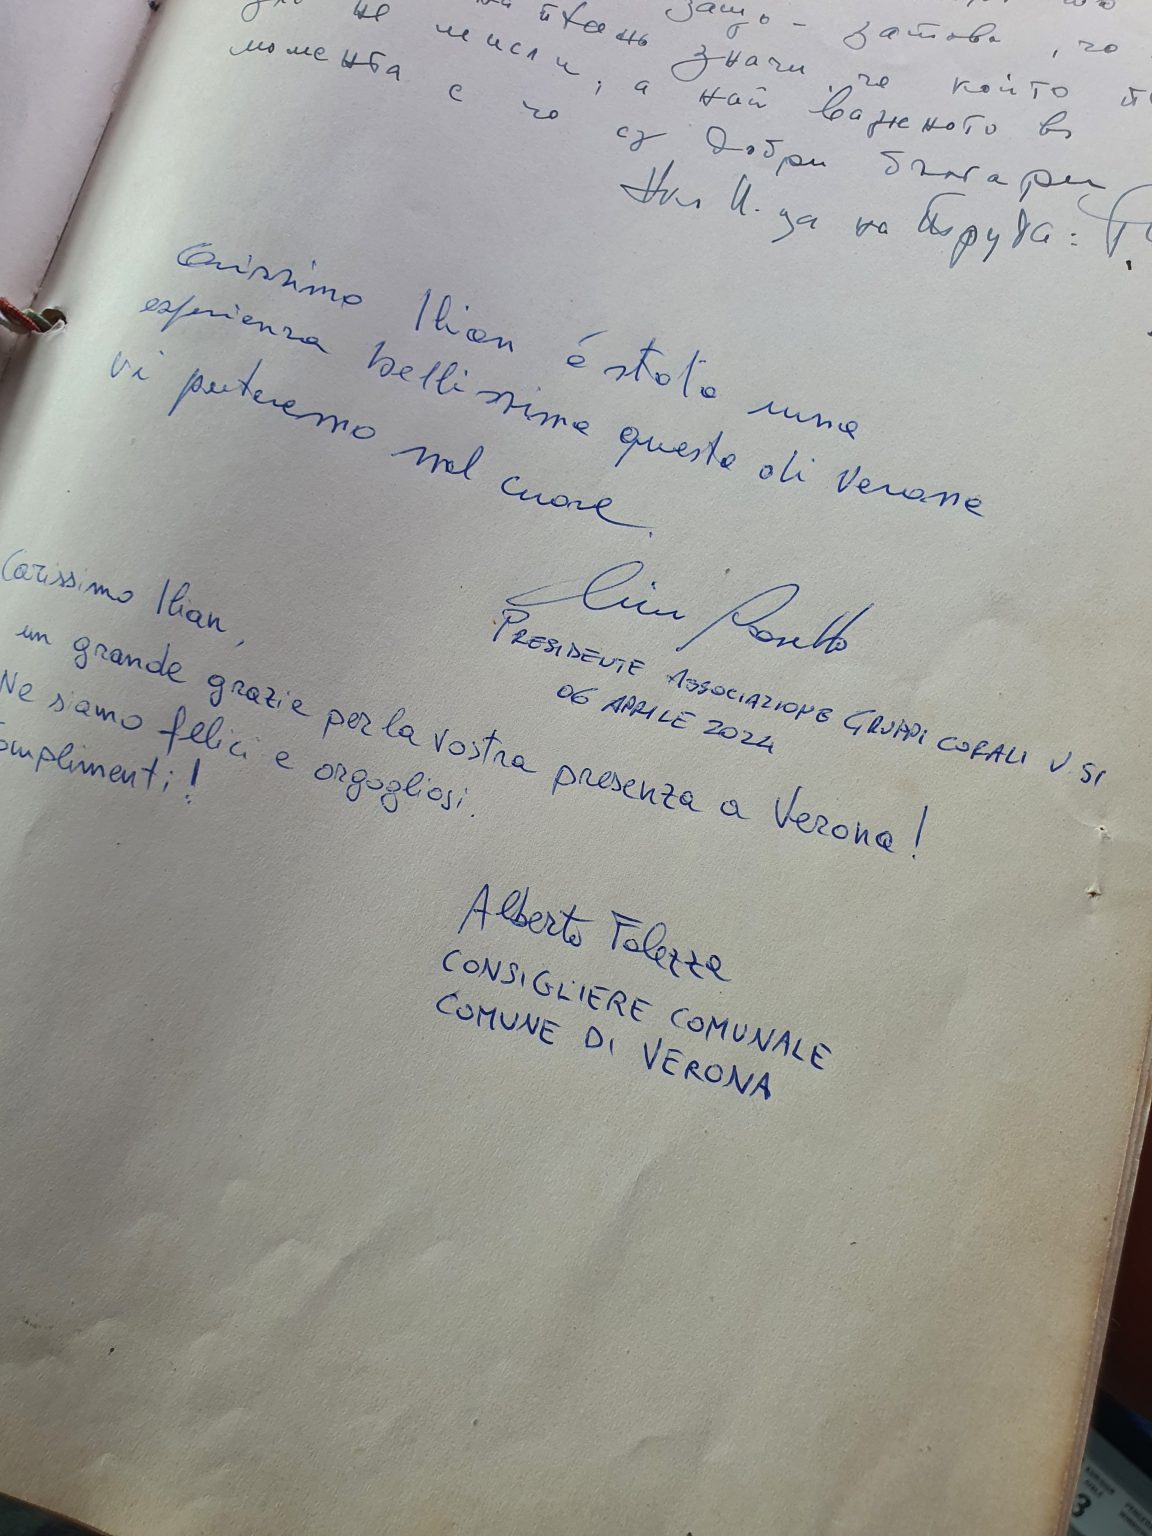 защо - затова, че
не мисли, а значи, че който
момента е че са най важното в
са добри българи
Carissimo Ilian é stata una
esperienza bellissima questa di Verona
vi porteremo nel cuore.
PRESIDENTE ASSOCIAZIONE GRUPPI CORALI V.SI
06 APRILE 2024
Carissimo Ilian,
un grande grazie per la vostra presenza a Verona!
Ne siamo felici e orgogliosi.
Complimenti!
Alberto Falezza
CONSIGLIERE COMUNALE
COMUNE DI VERONA